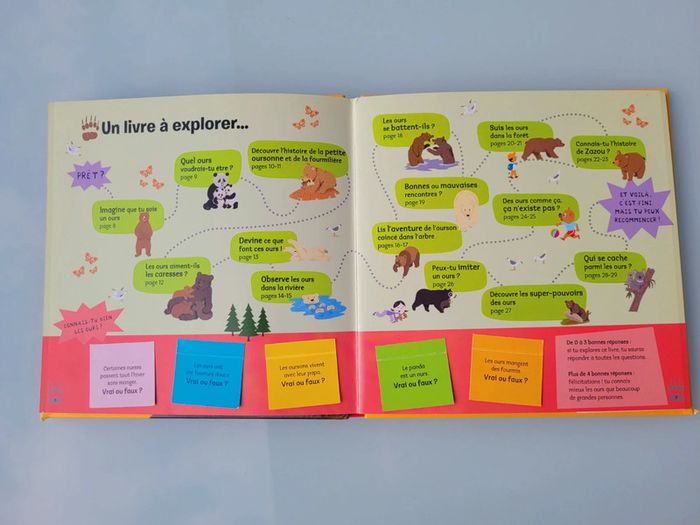 Un livre à explorer...
PRÊT ?
Imagine que tu sois
un ours
page 8
Quel ours
voudrais-tu être ?
page 9
Découvre l'histoire de la petite
oursonne et de la fourmilière
pages 10-11
Les ours aiment-ils
les caresses ?
page 12
Devine ce que
font ces ours !
page 13
Observe les ours
dans la rivière
pages 14-15
CONNAIS-TU BIEN
LES OURS ?
Certaines ourses
passent tout l'hiver
sans manger.
Vrai ou faux ?
Les ours ont
une fourrure douce.
Vrai ou faux ?
Les oursons vivent
avec leur papa.
Vrai ou faux ?
Les ours
se battent-ils ?
page 18
Suis les ours
dans la forêt
pages 20-21
Connais-tu l'histoire
de Zazou ?
pages 22-23
Bonnes ou mauvaises
rencontres ?
page 19
Des ours comme ça,
ça n'existe pas ?
pages 24-25
ET VOILÀ,
C'EST FINI
MAIS TU PEUX
RECOMMENCER !
Lis l'aventure de l'ourson
coincé dans l'arbre
pages 16-17
Peux-tu imiter
un ours ?
page 26
Qui se cache
parmi les ours ?
pages 28-29
Découvre les super-pouvoirs
des ours
page 27
Le panda
est un ours.
Vrai ou faux ?
Les ours mangent
des fourmis.
Vrai ou faux ?
De 0 à 3 bonnes réponses :
si tu explores ce livre, tu sauras
répondre à toutes les questions.
Plus de 4 bonnes réponses :
félicitations ! tu connais
mieux les ours que beaucoup
de grandes personnes.